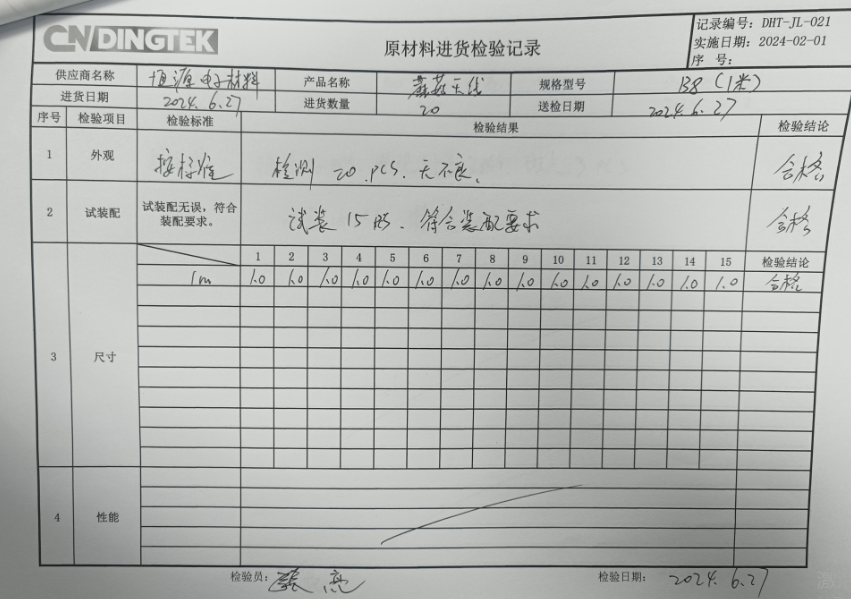 CNDINGTEK
原材料进货检验记录
记录编号：DHT-JL-021
实施日期：2024-02-01
序 号：
供应商名称 恒源电子材料 产品名称 蘑菇天线 规格型号 B8（1米）
进货日期 2024.6.27 进货数量 20 送检日期 2024.6.27
序号 检验项目 检验标准 检验结果 检验结论
1 外观 按标准 检测 20 PCS. 无不良. 合格
2 试装配 试装配无误，符合装配要求。 试装 15 . 符合装配要求 合格
1 2 3 4 5 6 7 8 9 10 11 12 13 14 15 检验结论
1m 1.0 1.0 1.0 1.0 1.0 1.0 1.0 1.0 1.0 1.0 1.0 1.0 1.0 1.0 1.0 合格
3 尺寸
4 性能
检验员：张亮 检验日期： 2024. 6.27